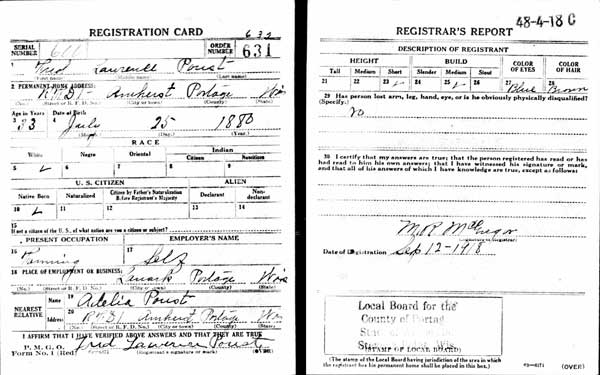 REGISTRATION CARD
632
SERIAL NUMBER 611
ORDER NUMBER 631
1 Fred Lawrence Poust
(First name) (Middle name) (Last name)
2 PERMANENT HOME ADDRESS:
Amherst Portage Wis
(No.) (Street or R. F. D. No.) (City or town) (County) (State)
Age in Years Date of Birth
3 4 July 25 1880
(Month) (Day) (Year)
RACE
White Negro Oriental Indian
Citizen Noncitizen
5 6 7 8 9
U. S. CITIZEN ALIEN
Native Born Naturalized Citizen by Father's Naturalization Before Registrant's Majority Declarant Non-declarant
10 11 12 13 14
15 If not a citizen of the U. S., of what nation are you a citizen or subject?
PRESENT OCCUPATION EMPLOYER'S NAME
16 Farming 17 Self
18 PLACE OF EMPLOYMENT OR BUSINESS:
Lanark Portage Wis
(No.) (Street or R. F. D. No.) (City or town) (County) (State)
NEAREST RELATIVE
Name 19 Adelia Poust
Address 20 Amherst Portage Wis
(No.) (Street or R. F. D. No.) (City or town) (County) (State)
I AFFIRM THAT I HAVE VERIFIED ABOVE ANSWERS AND THAT THEY ARE TRUE
P. M. G. O.
Form No. 1 (Red) Fred Lawrence Poust
(Registrant's signature or mark) (OVER)
48-4-18 C
REGISTRAR'S REPORT
DESCRIPTION OF REGISTRANT
HEIGHT BUILD COLOR OF EYES COLOR OF HAIR
Tall Medium Short Slender Medium Stout
21 22 23 24 25 26 27 Blue 28 Brown
29 Has person lost arm, leg, hand, eye, or is he obviously physically disqualified?
(Specify.)
No
30 I certify that my answers are true; that the person registered has read or has
had read to him his own answers; that I have witnessed his signature or mark,
and that all of his answers of which I have knowledge are true, except as follows:
M.R. McGregor
(Signature of Registrar)
Date of Registration Sep 12-1918
Local Board for the
County of Portage
(STAMP OF LOCAL BOARD)
(The stamp of the Local Board having jurisdiction of the area in which
the registrant has his permanent home shall be placed in this box.)
(OVER)